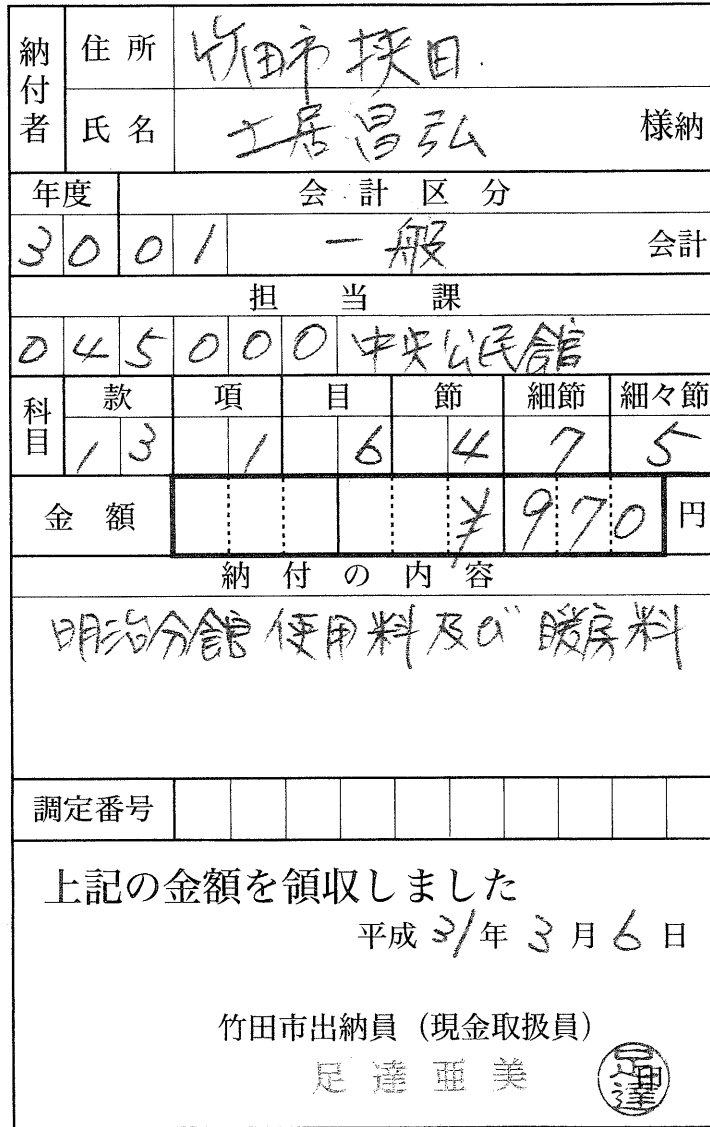 納付者 住所 竹田市挾田
氏名 土居昌弘 様納
年度 会計区分
30 01 一般 会計
担当課
045000 中央公民館
科目 款 項 目 節 細節 細々節
13 1 6 4 7 5
金額 ¥970 円
納付の内容
明治分館使用料及び暖房料
調定番号
上記の金額を領収しました
平成31年3月6日
竹田市出納員（現金取扱員）
足達亜美 足達 印